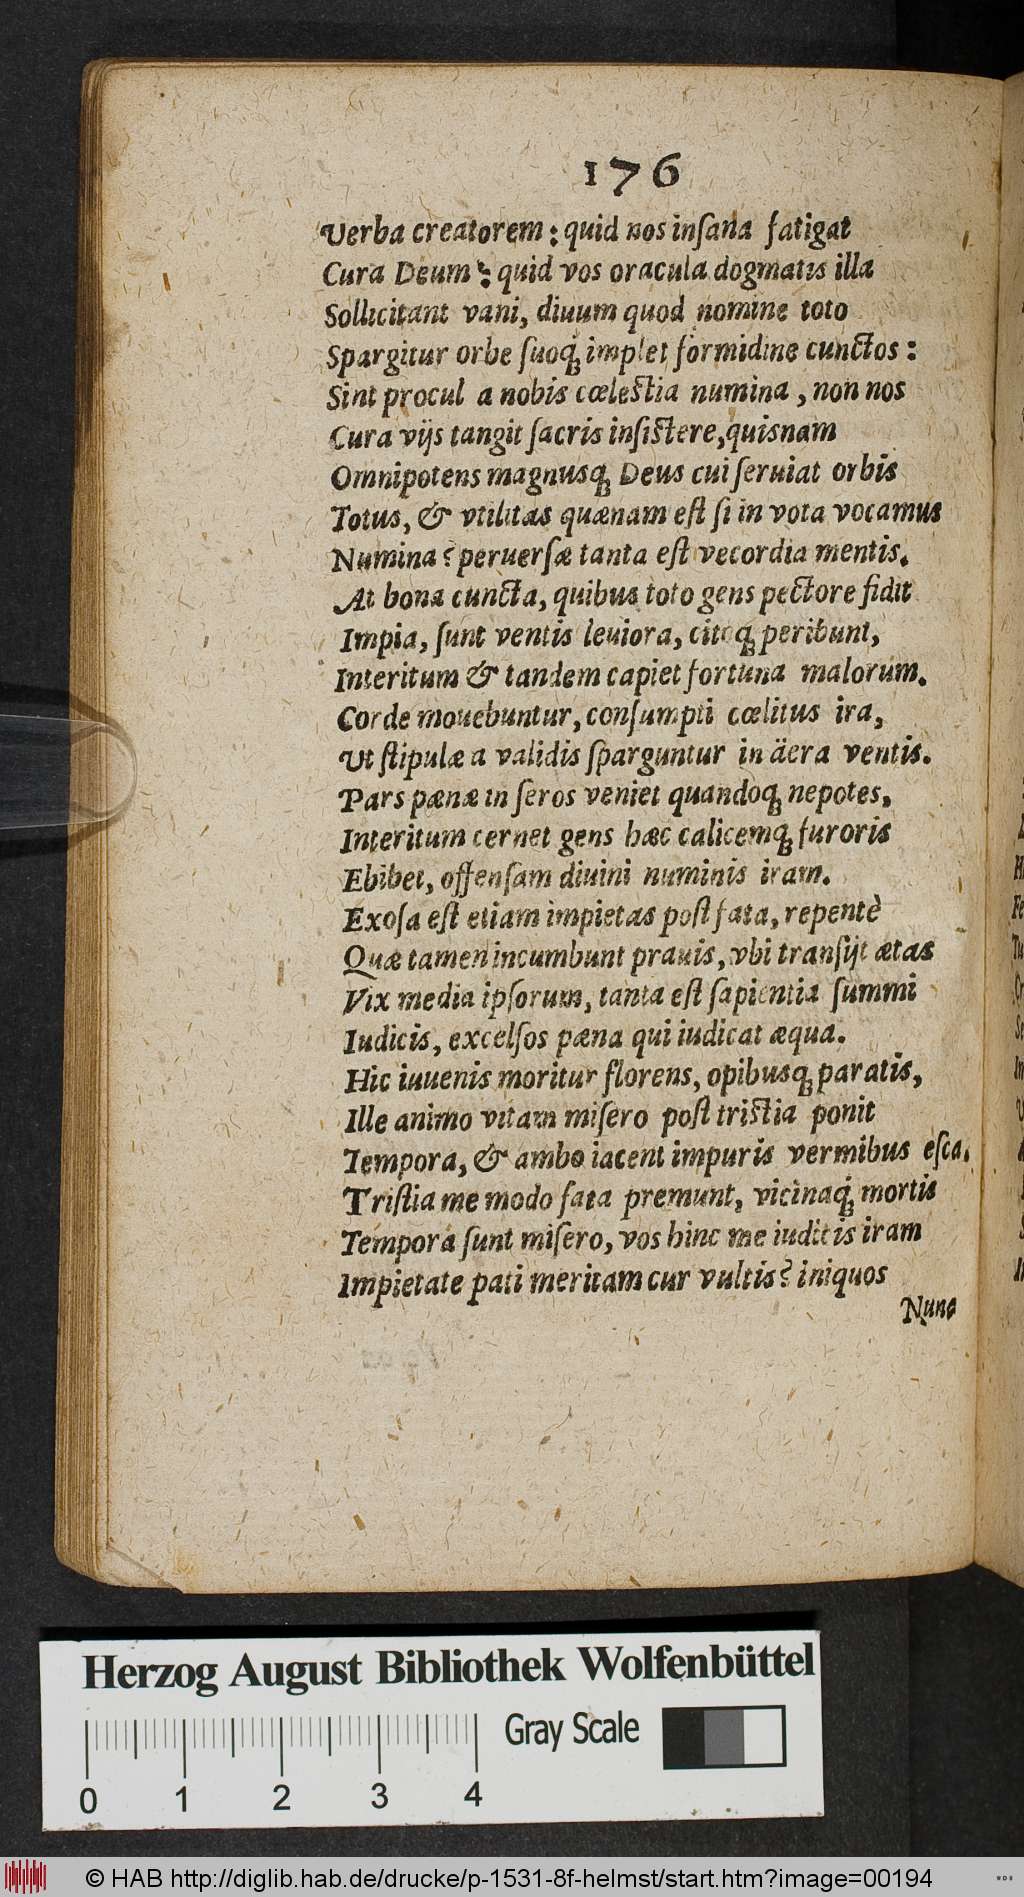 176
Verba creatorem: quid nos inſana fatigat
Cura Deum?: quid vos oracula dogmatis illa
Sollicitant vani, diuum quod nomine toto
Spargitur orbe ſuoq́ꝫ implet formidine cunctos:
Sint procul a nobis cœleſtia numina, non nos
Cura vijs tangit ſacris inſiſtere, quisnam
Omnipotens magnusqꝫ Deus cui ſeruiat orbis
Totus, & vtilitas quænam eſt ſi in vota vocamus
Numina? peruerſæ tanta eſt vecordia mentis.
At bona cuncta, quibus toto gens pectore fidit
Impia, ſunt ventis leuiora, citoqꝫ peribunt,
Interitum & tandem capiet fortuna malorum.
Corde mouebuntur, conſumpti cœlitus ira,
Ut ſtipulæ a validis ſparguntur in äera ventis.
Pars pænæ in ſeros veniet quandoqꝫ nepotes,
Interitum cernet gens hæc calicemqꝫ furoris
Ebibet, offenſam diuini numinis iram.
Exoſa eſt etiam impietas poſt fata, repentè
Quæ tamen incumbunt prauis, vbi tranſijt ætas
Vix media ipſorum, tanta eſt ſapientia ſummi
Iudicis, excelſos pæna qui iudicat æqua.
Hic iuuenis moritur florens, opibusqꝫ paratis,
Ille animo vitam miſero poſt triſtia ponit
Tempora, & ambo iacent impuris vermibus eſca.
Triſtia me modo fata premunt, vicinaq́ꝫ mortis
Tempora ſunt miſero, vos hinc me iudicis iram
Impietate pati meritam cur vultis? iniquos
Nunc
Herzog August Bibliothek Wolfenbüttel
Gray Scale
0 1 2 3 4
© HAB http://diglib.hab.de/drucke/p-1531-8f-helmst/start.htm?image=00194